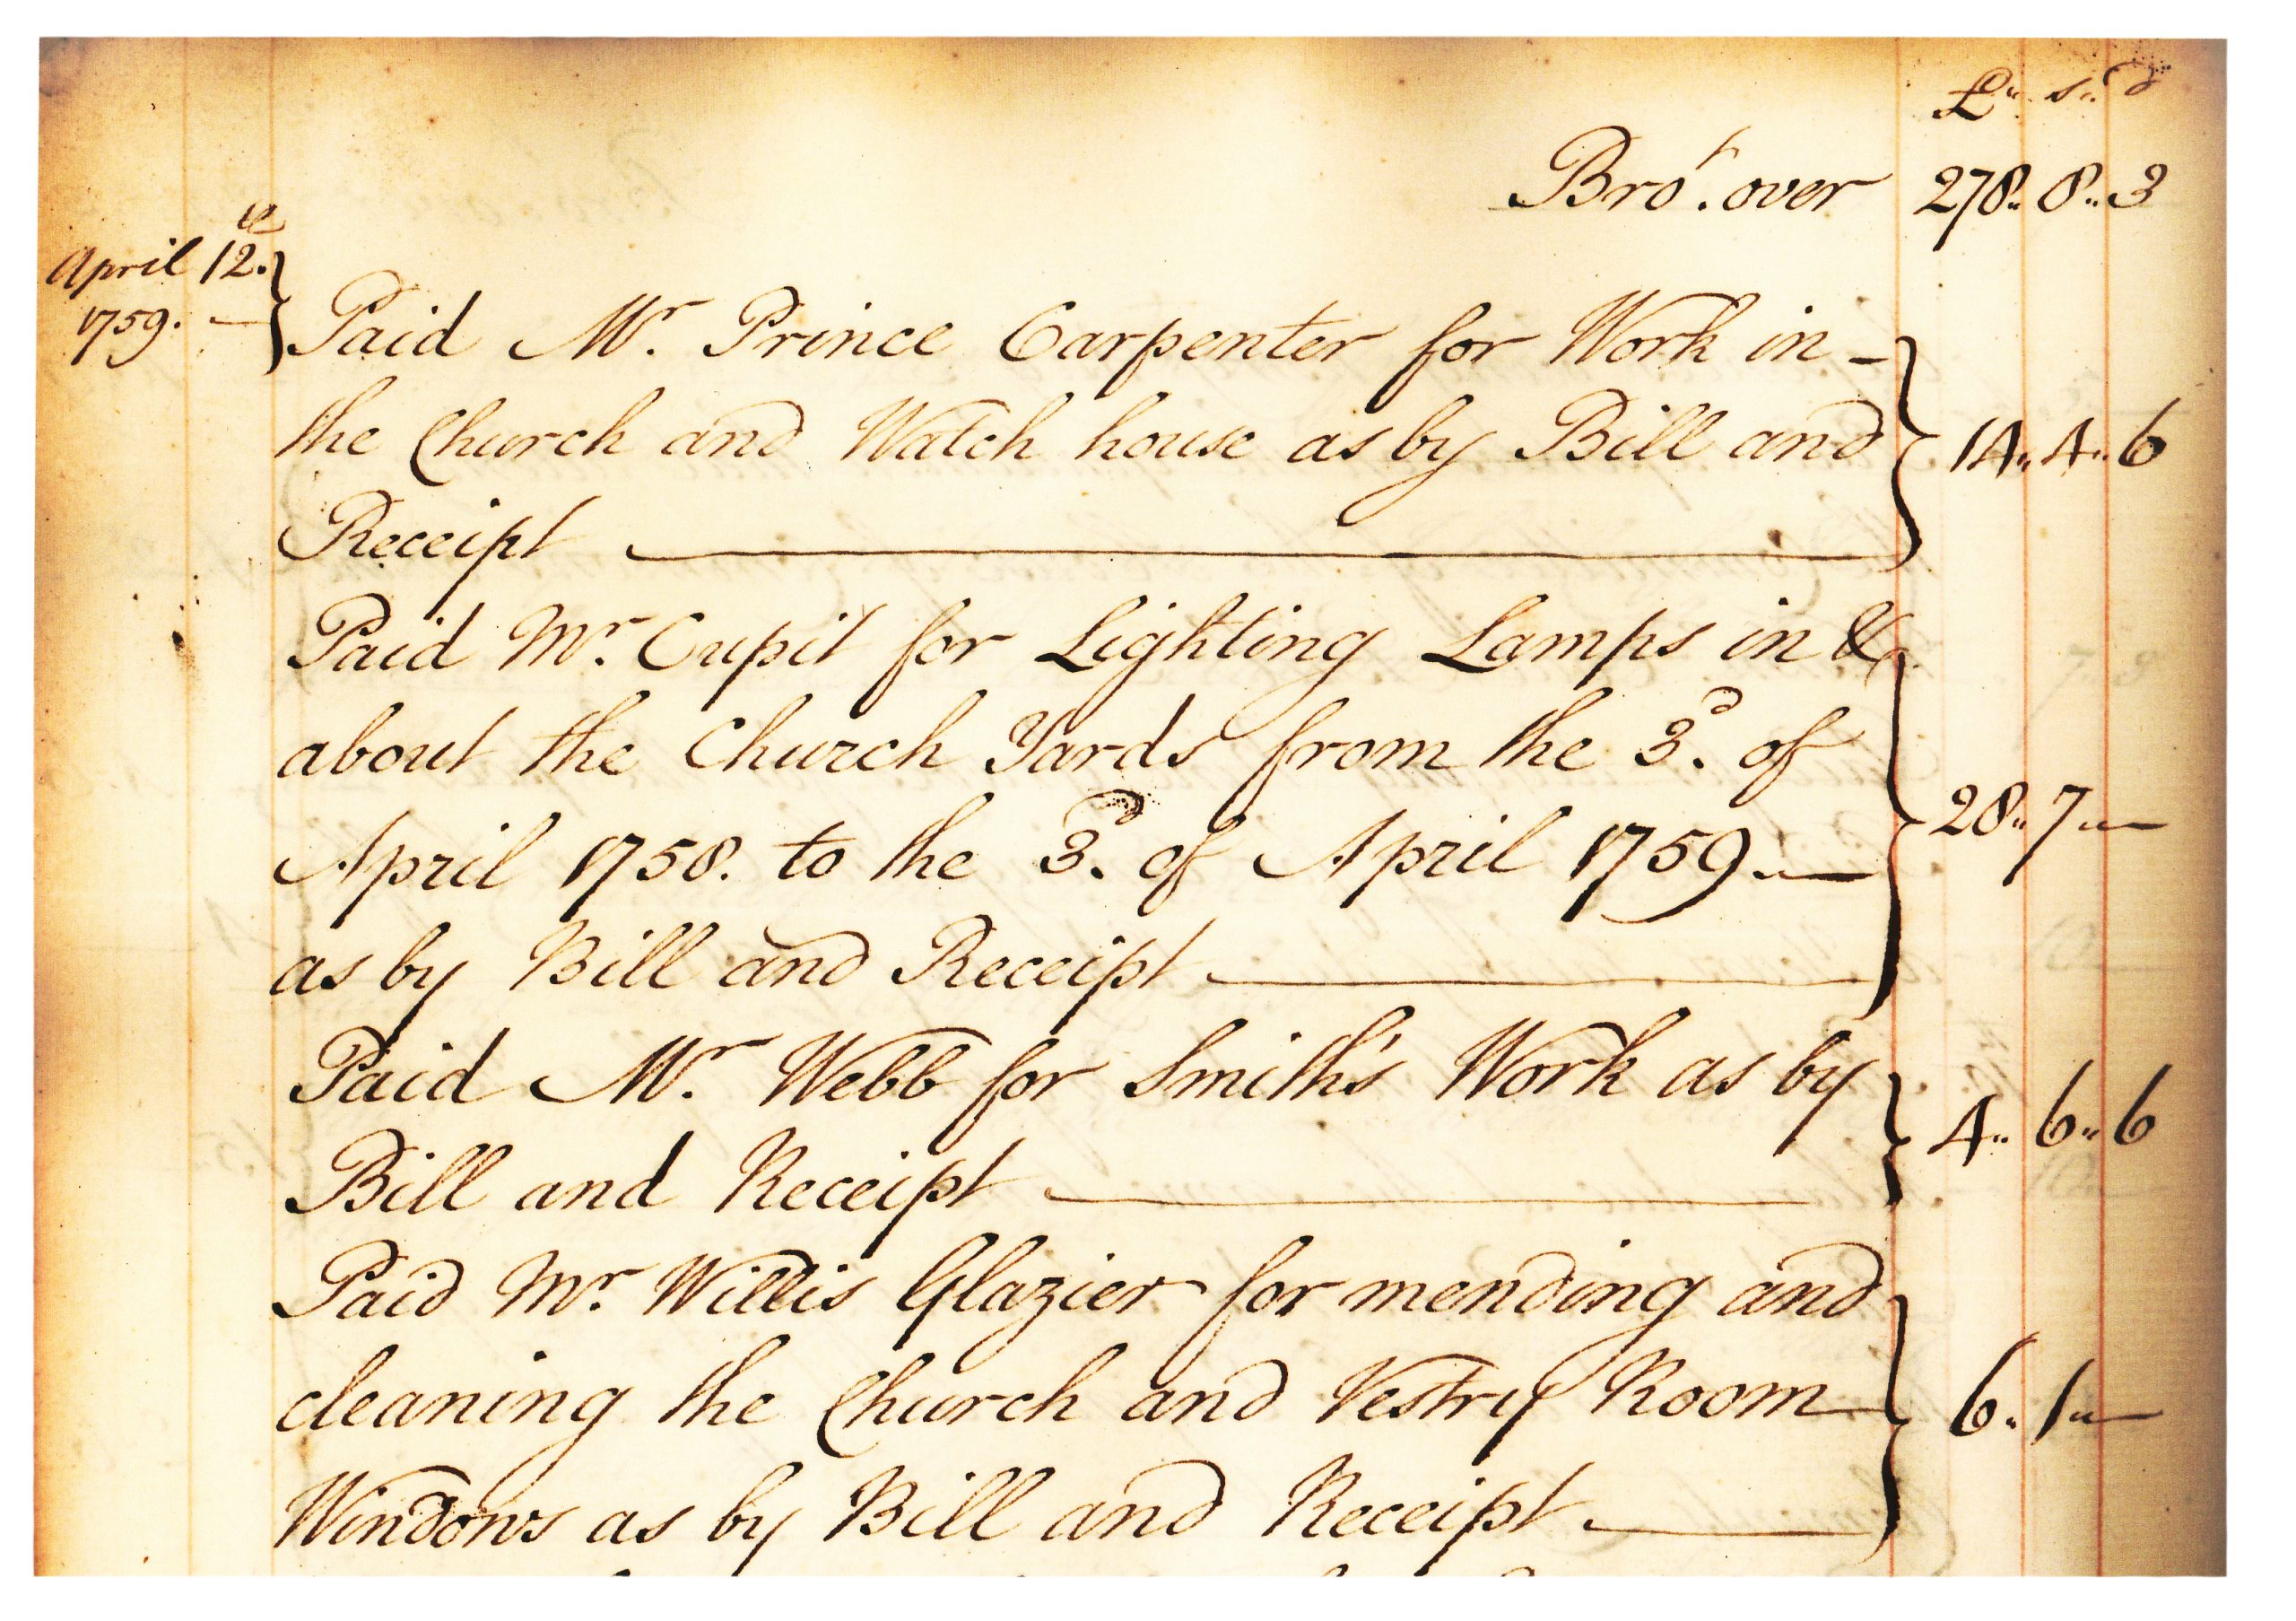 £ s d
Bro.t over 278.. 8.. 3
April 12.
1759. — Paid Mr. Prince Carpenter for Work in -
the Church and Watch house as by Bill and 14.. 4.. 6
Receipt —
Paid Mr. Cupit for Lighting Lamps in &
about the Church Yards from the 3d. of
April 1758. to the 3d. of April 1759 — 28.. 7.. —
as by Bill and Receipt —
Paid Mr. Webb for Smith's Work as by
Bill and Receipt — 4.. 6.. 6
Paid Mr. Willis Glazier for mending and
cleaning the Church and Vestry Room 6.. 1.. —
Windows as by Bill and Receipt —